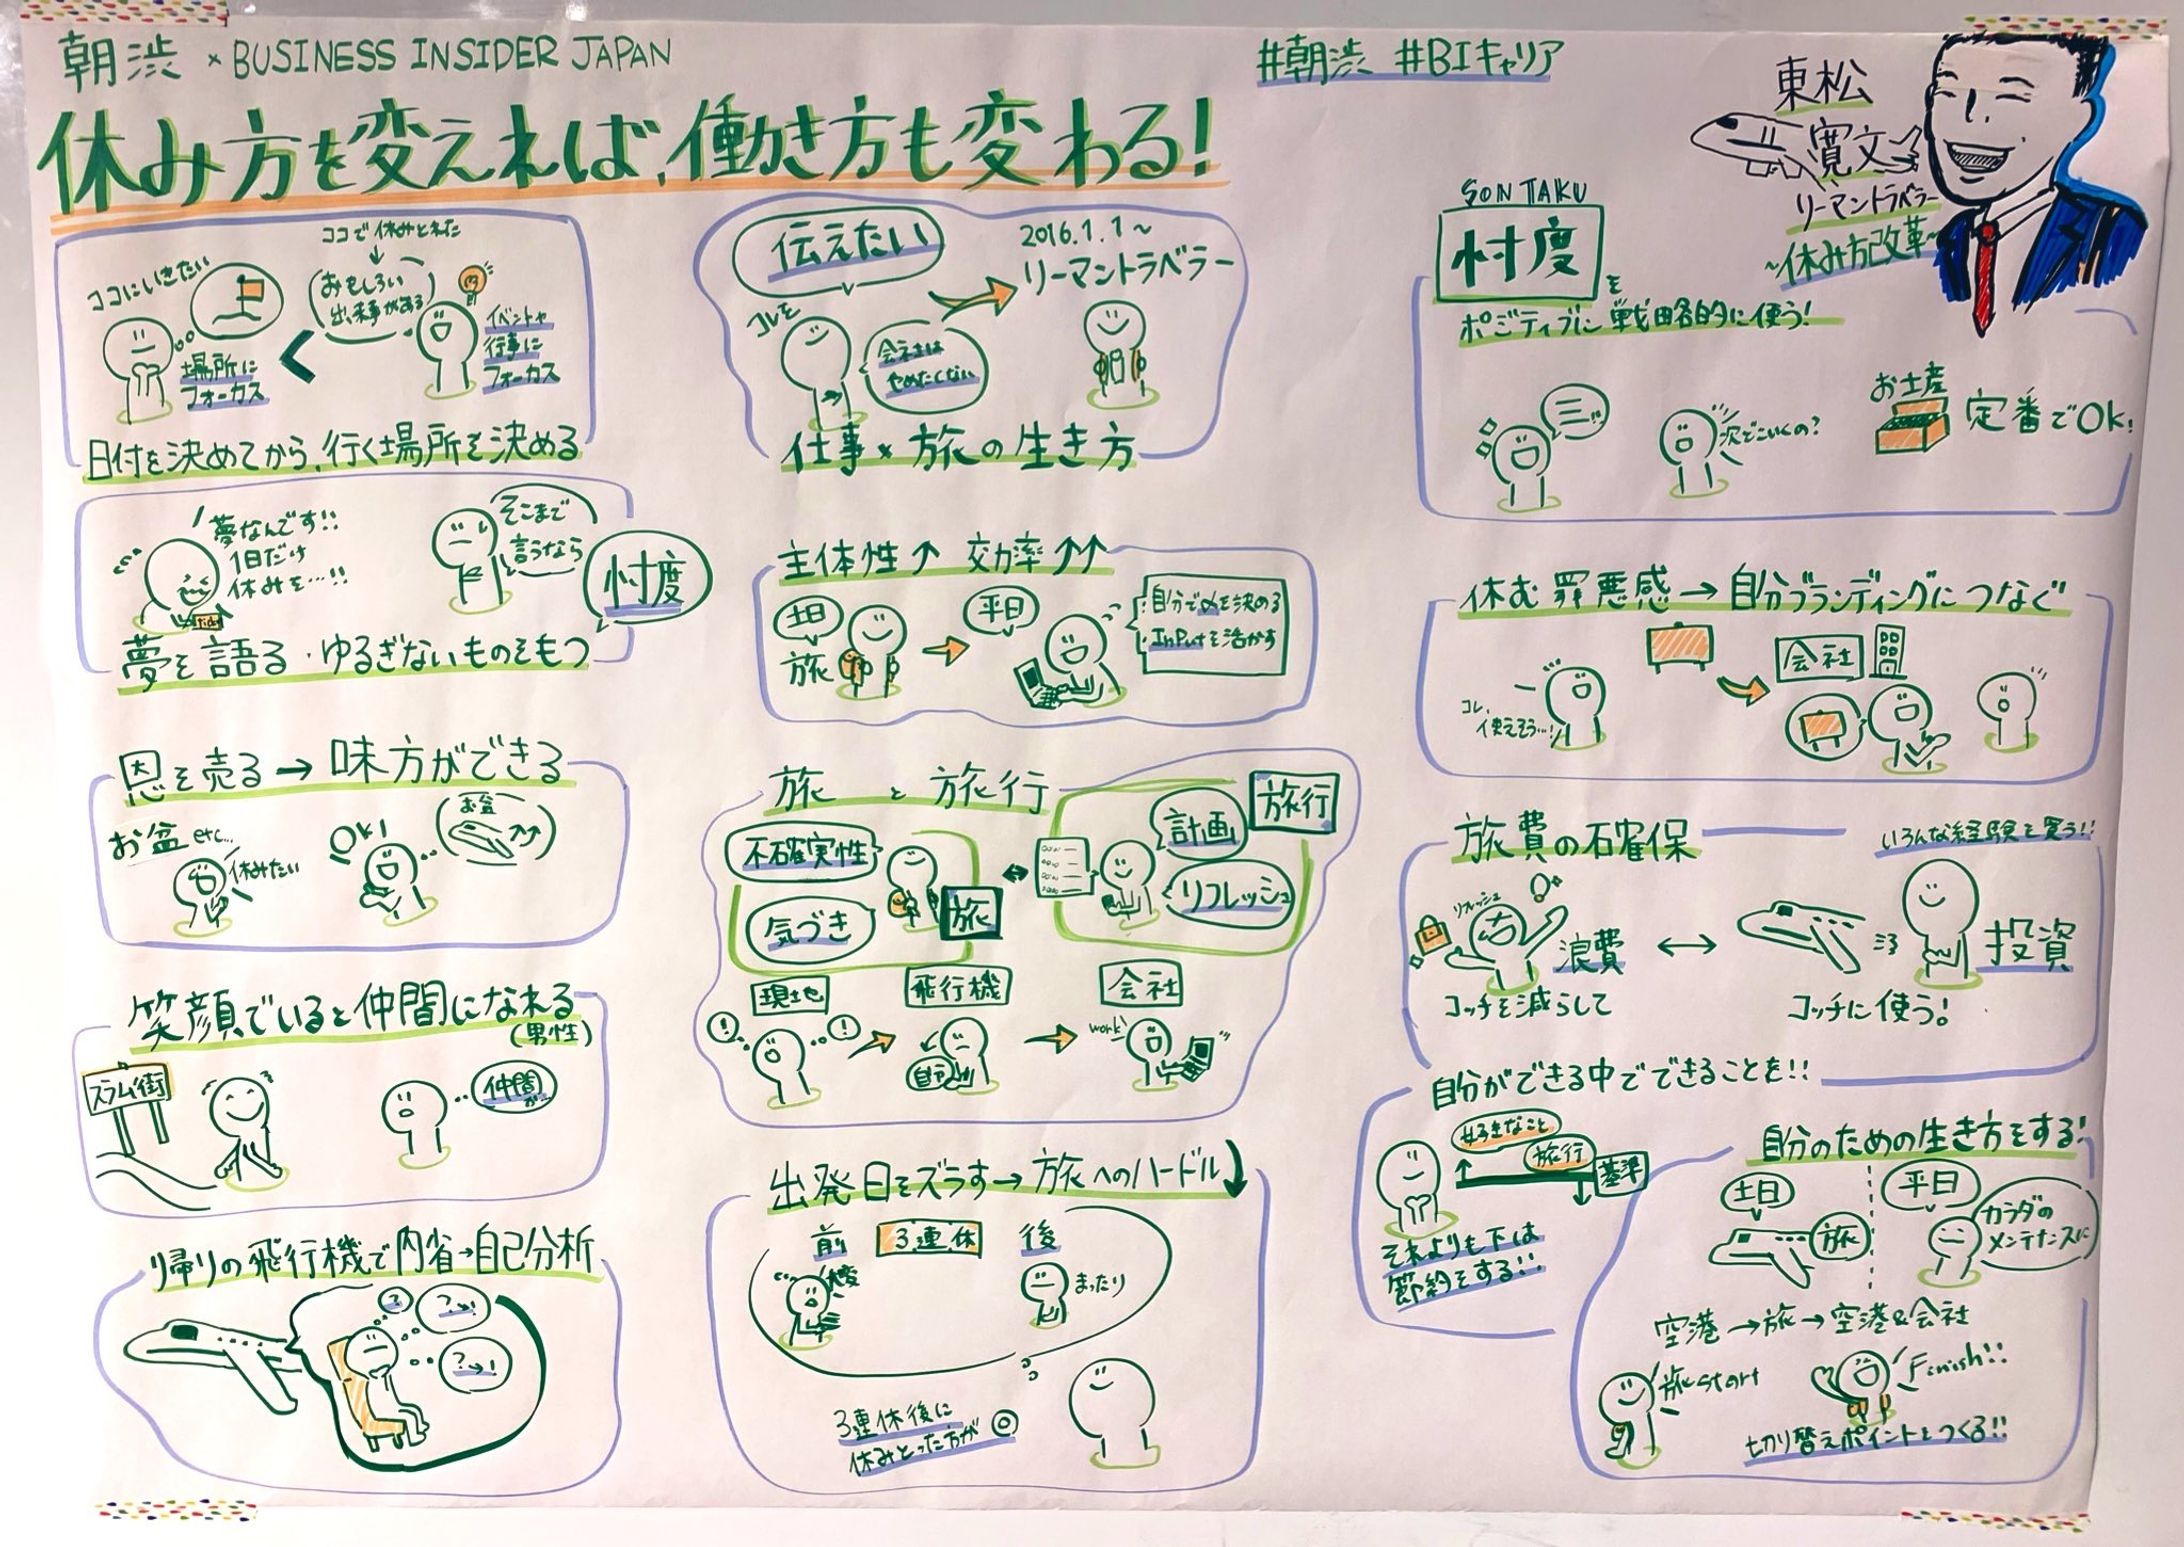 朝渋 × BUSINESS INSIDER JAPAN
#朝渋 #BIキャリア
休み方を変えれば、働き方も変わる!
東松
寛文
リーマントラベラー
~休み方改革~
ココにいきたい
場所に
フォーカス
<
ココで休みとれた
おもしろい
出来事がある
イベントや
行事に
フォーカス
日付を決めてから、行く場所を決める
夢なんです!!
1日だけ
休みを…!!
そこまで
言うなら
忖度
夢を語る・ゆるぎないものをもつ
恩を売る→味方ができる
お盆 etc...
休みたい
OK!
お盆
↑↑
笑顔でいると仲間になれる
(男性)
スラム街
仲間が…
帰りの飛行機で内省→自己分析
?
?→!
?→!
伝えたい
コレを
会社は
やめたくない
2016.1.1~
リーマントラベラー
仕事×旅の生き方
主体性↑ 効率↑↑
土日
旅
平日
・自分で〆を決める
・InPutを活かす
旅 と 旅行
不確実性
気づき
旅
↔
計画
リフレッシュ
旅行
現地
!
!
飛行機
自分
会社
work!
出発日をズラす→旅へのハードル↓
前
3連休
後
大変
まったり
3連休後に
休みとった方が◎
SONTAKU
忖度を
ポジティブに戦略的に使う!
次どこいくの?
お土産
定番でOk!
休む罪悪感→自分ブランディングにつなぐ
コレ、
使えそう…!
会社
旅費の確保
いろんな経験を買う!!
リフレッシュ
浪費
↔
投資
コッチを減らして
コッチに使う!
自分ができる中でできることを!!
好きなこと
旅行
基準
それよりも下は
節約をする!!
自分のための生き方をする!
土日
旅
平日
カラダの
メンテナンスに
空港→旅→空港&会社
旅start
Finish!!
切り替えポイントをつくる!!